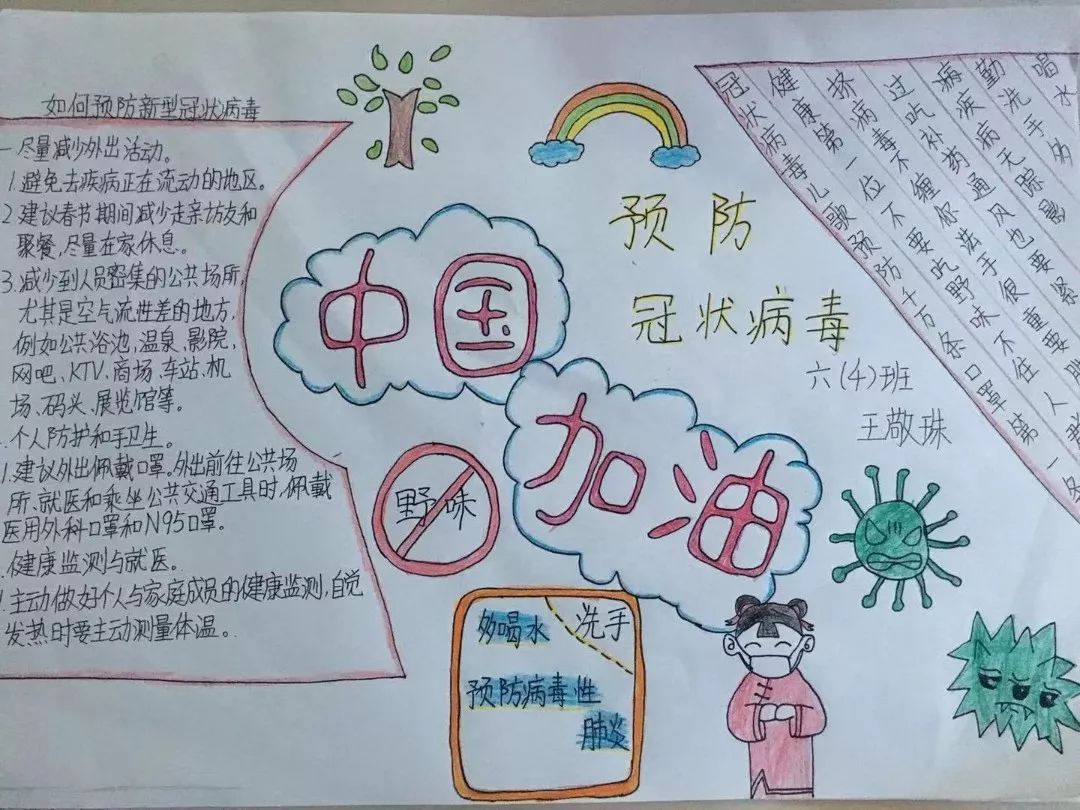 如何预防新型冠状病毒
一尽量减少外出活动。
1.避免去疾病正在流动的地区。
2.建议春节期间减少走亲访友和
聚餐,尽量在家休息。
3.减少到人员密集的公共场所,
尤其是空气流性差的地方,
例如公共浴池,温泉、影院、
网吧、KTV、商场、车站、机
场、码头、展览馆等。
.个人防护和手卫生。
1.建议外出佩戴口罩。外出前往公共场
所、就医和乘坐公共交通工具时,佩戴
医用外科口罩和N95口罩。
.健康监测与就医。
1.主动做好个人与家庭成员的健康监测,自觉
发热时要主动测量体温。
中国
加油
预防
冠状病毒
六(4)班
王敬珠
野味
多喝水
洗手
预防病毒性
肺炎
冠状病毒儿歌预防千万条口罩第一条
健康第一位不要吃野味不住
挤病毒不缠你洗手很重要人
过吃补药通风也要紧
病疾病无踪影
勤洗手多
唱水